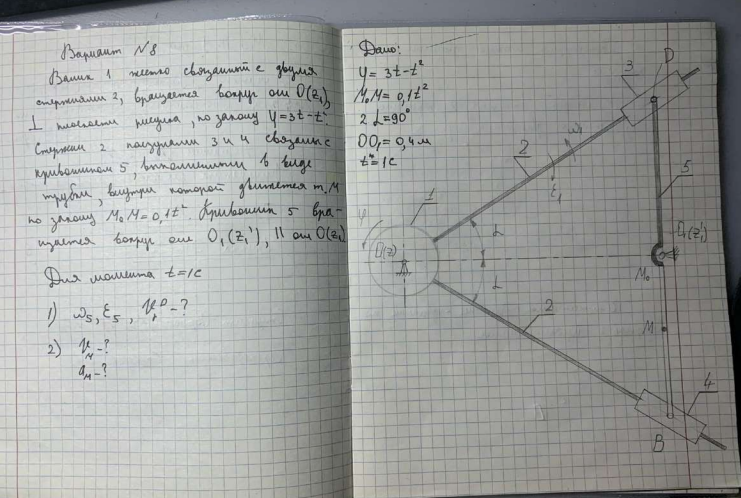 Вариант №8
Валик 1 жестко связанный с двумя
стержнями 2, вращается вокруг оси O(z₁),
⊥ плоскости рисунка, по закону φ=3t-t².
Стержни 2 ползунами 3 и 4 связаны с
кривошипом 5, выполненным в виде
трубки, внутри которой движется т. М
по закону M₀M=0,1t². Кривошип 5 вра-
щается вокруг оси O₁(z₁'), || оси O(z₁)
Для момента t=1c
1) ω₅, ε₅, -?
2) Vм -?
aм -?
Дано:
φ=3t-t²
M₀M=0,1t²
2α=90°
OO₁=0,4м
t=1c
D
3
ω₁
2
ε₁
5
1
φ
α
O(z)
O₁(z₁')
M₀
α
2
M
4
B